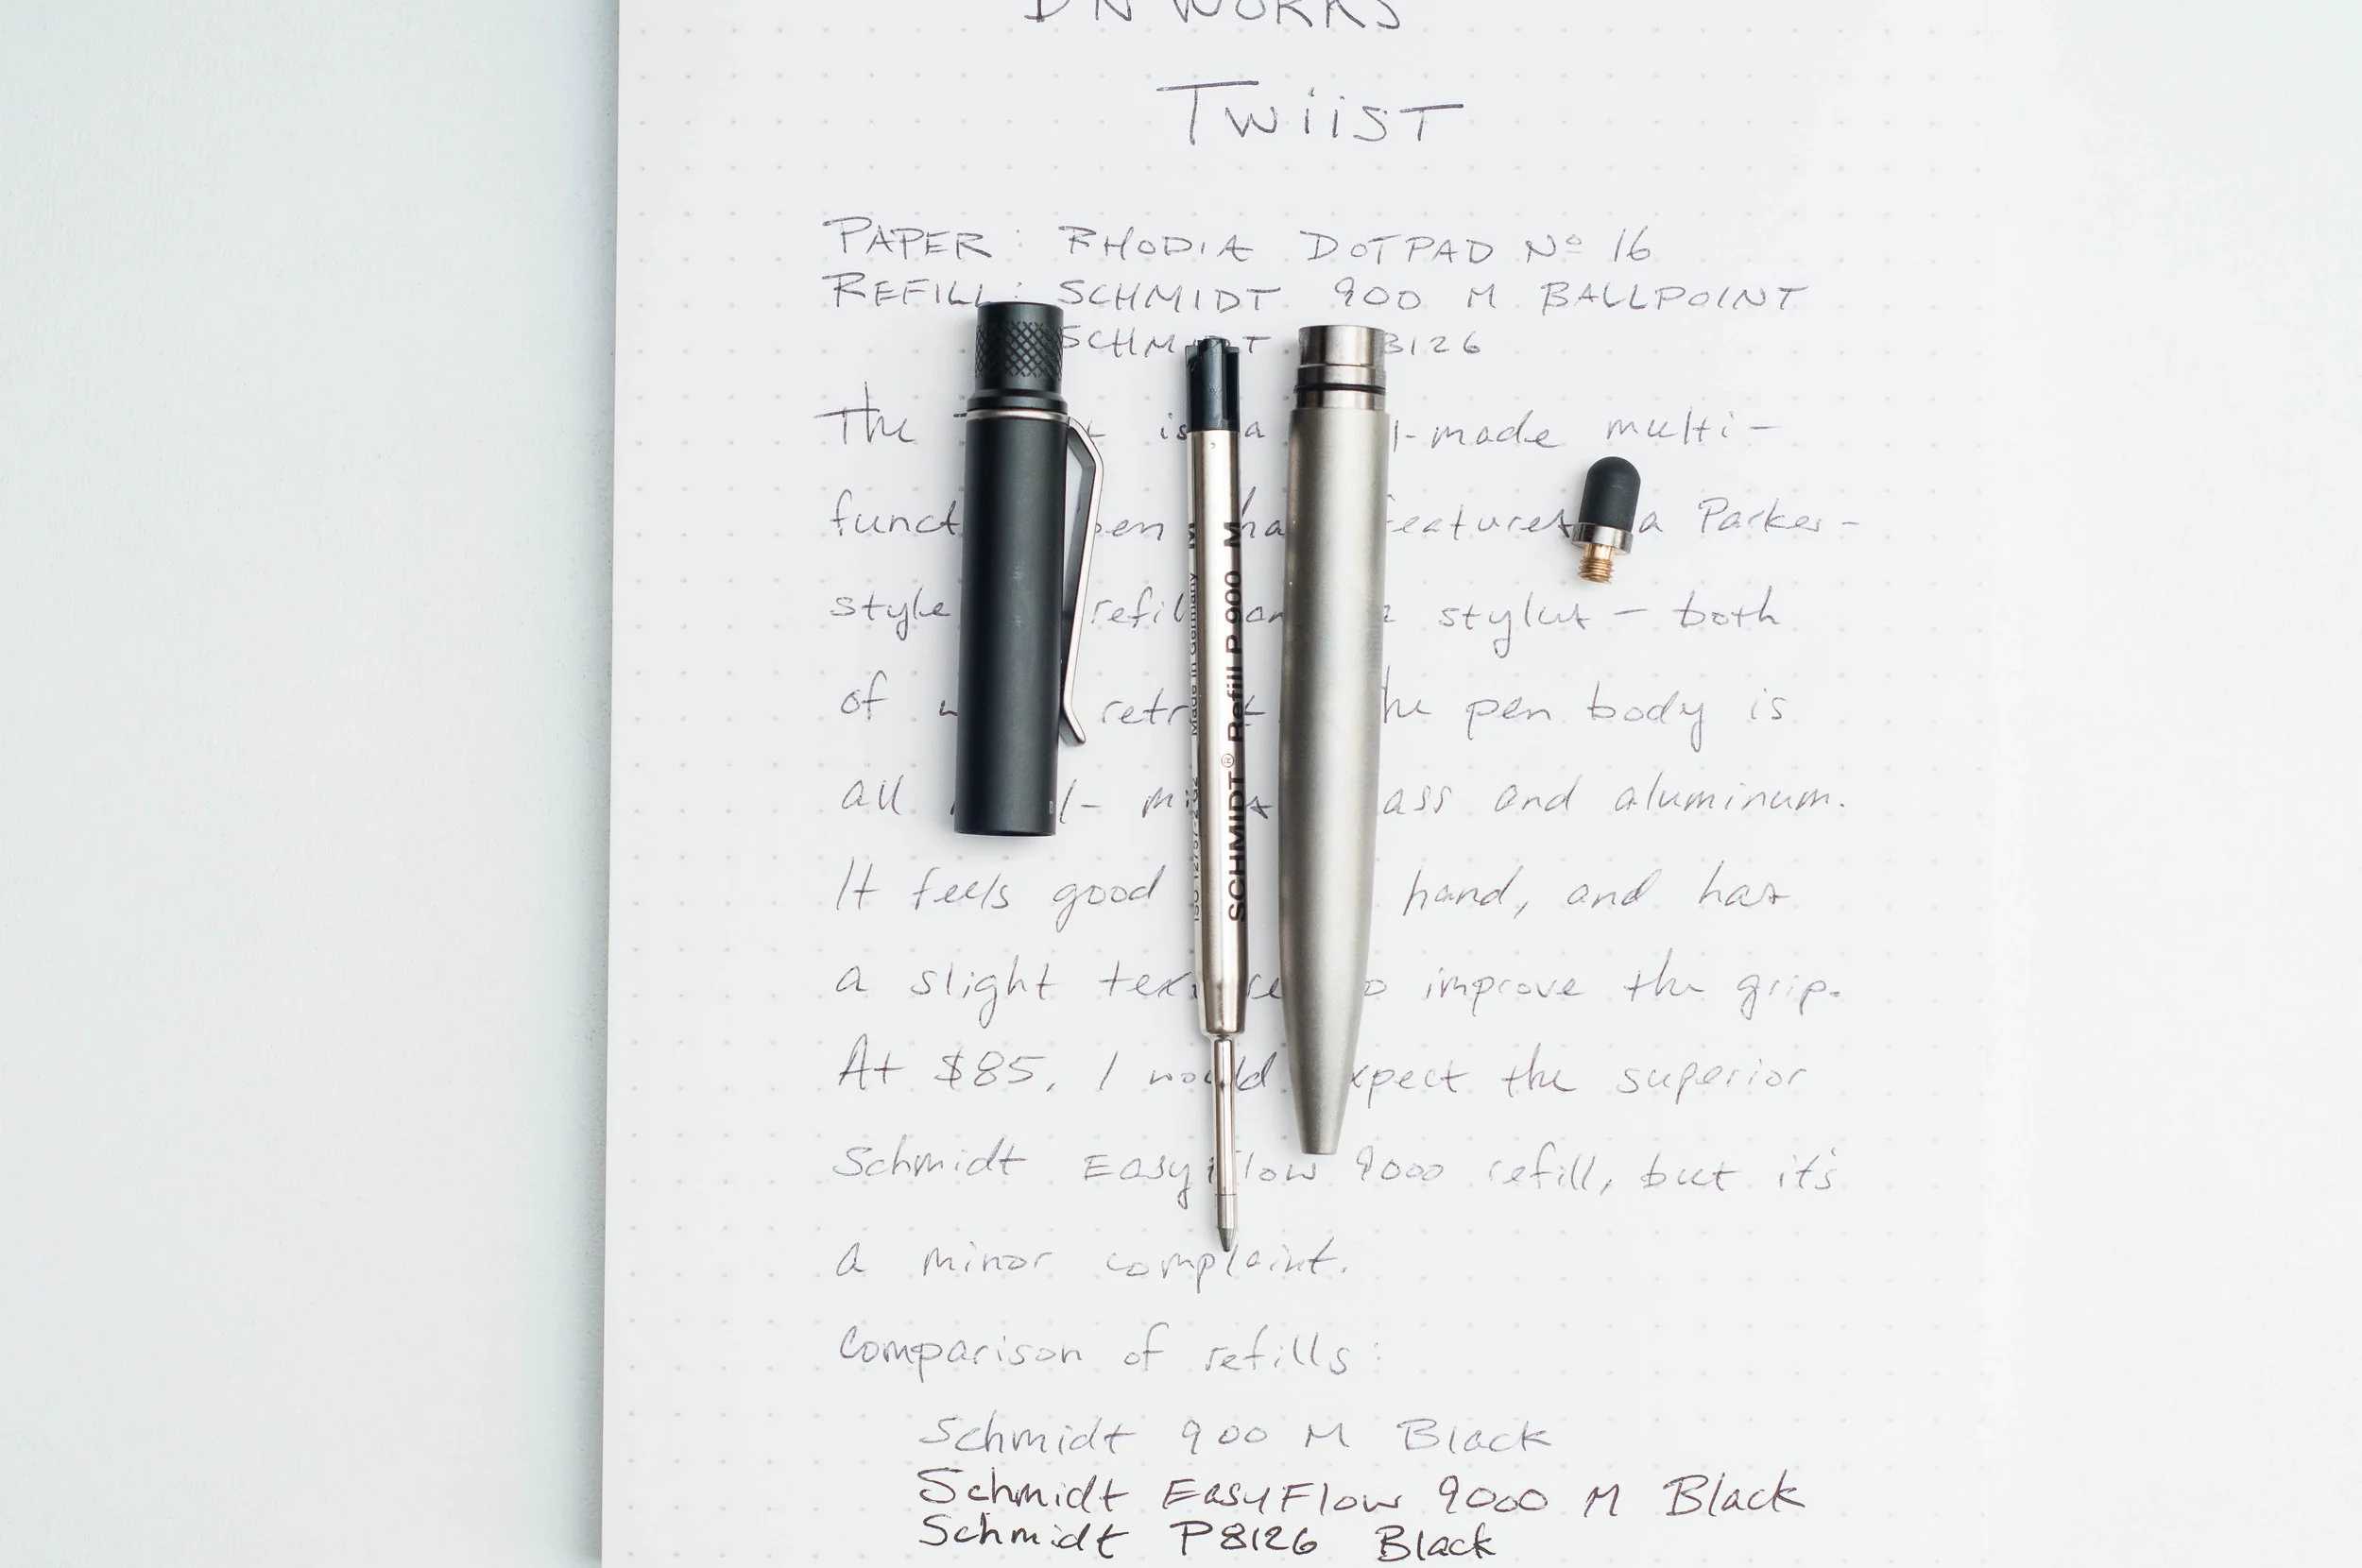 DN WORKS
TWiiST
PAPER: RHODIA DOTPAD Nº 16
REFILL: SCHMIDT 900 M BALLPOINT
8126
The is a -made multi-
features a Parker-
style stylus - both
of the pen body is
all and aluminum.
It feels good hand, and has
a slight improve the grip.
At $85, I would expect the superior
Schmidt EasyFlow 9000 refill, but it's
a minor complaint.
Comparison of refills:
Schmidt 900 M Black
Schmidt EasyFlow 9000 M Black
Schmidt P8126 Black
SCHMIDT® Refill P 900 M
Made in Germany M